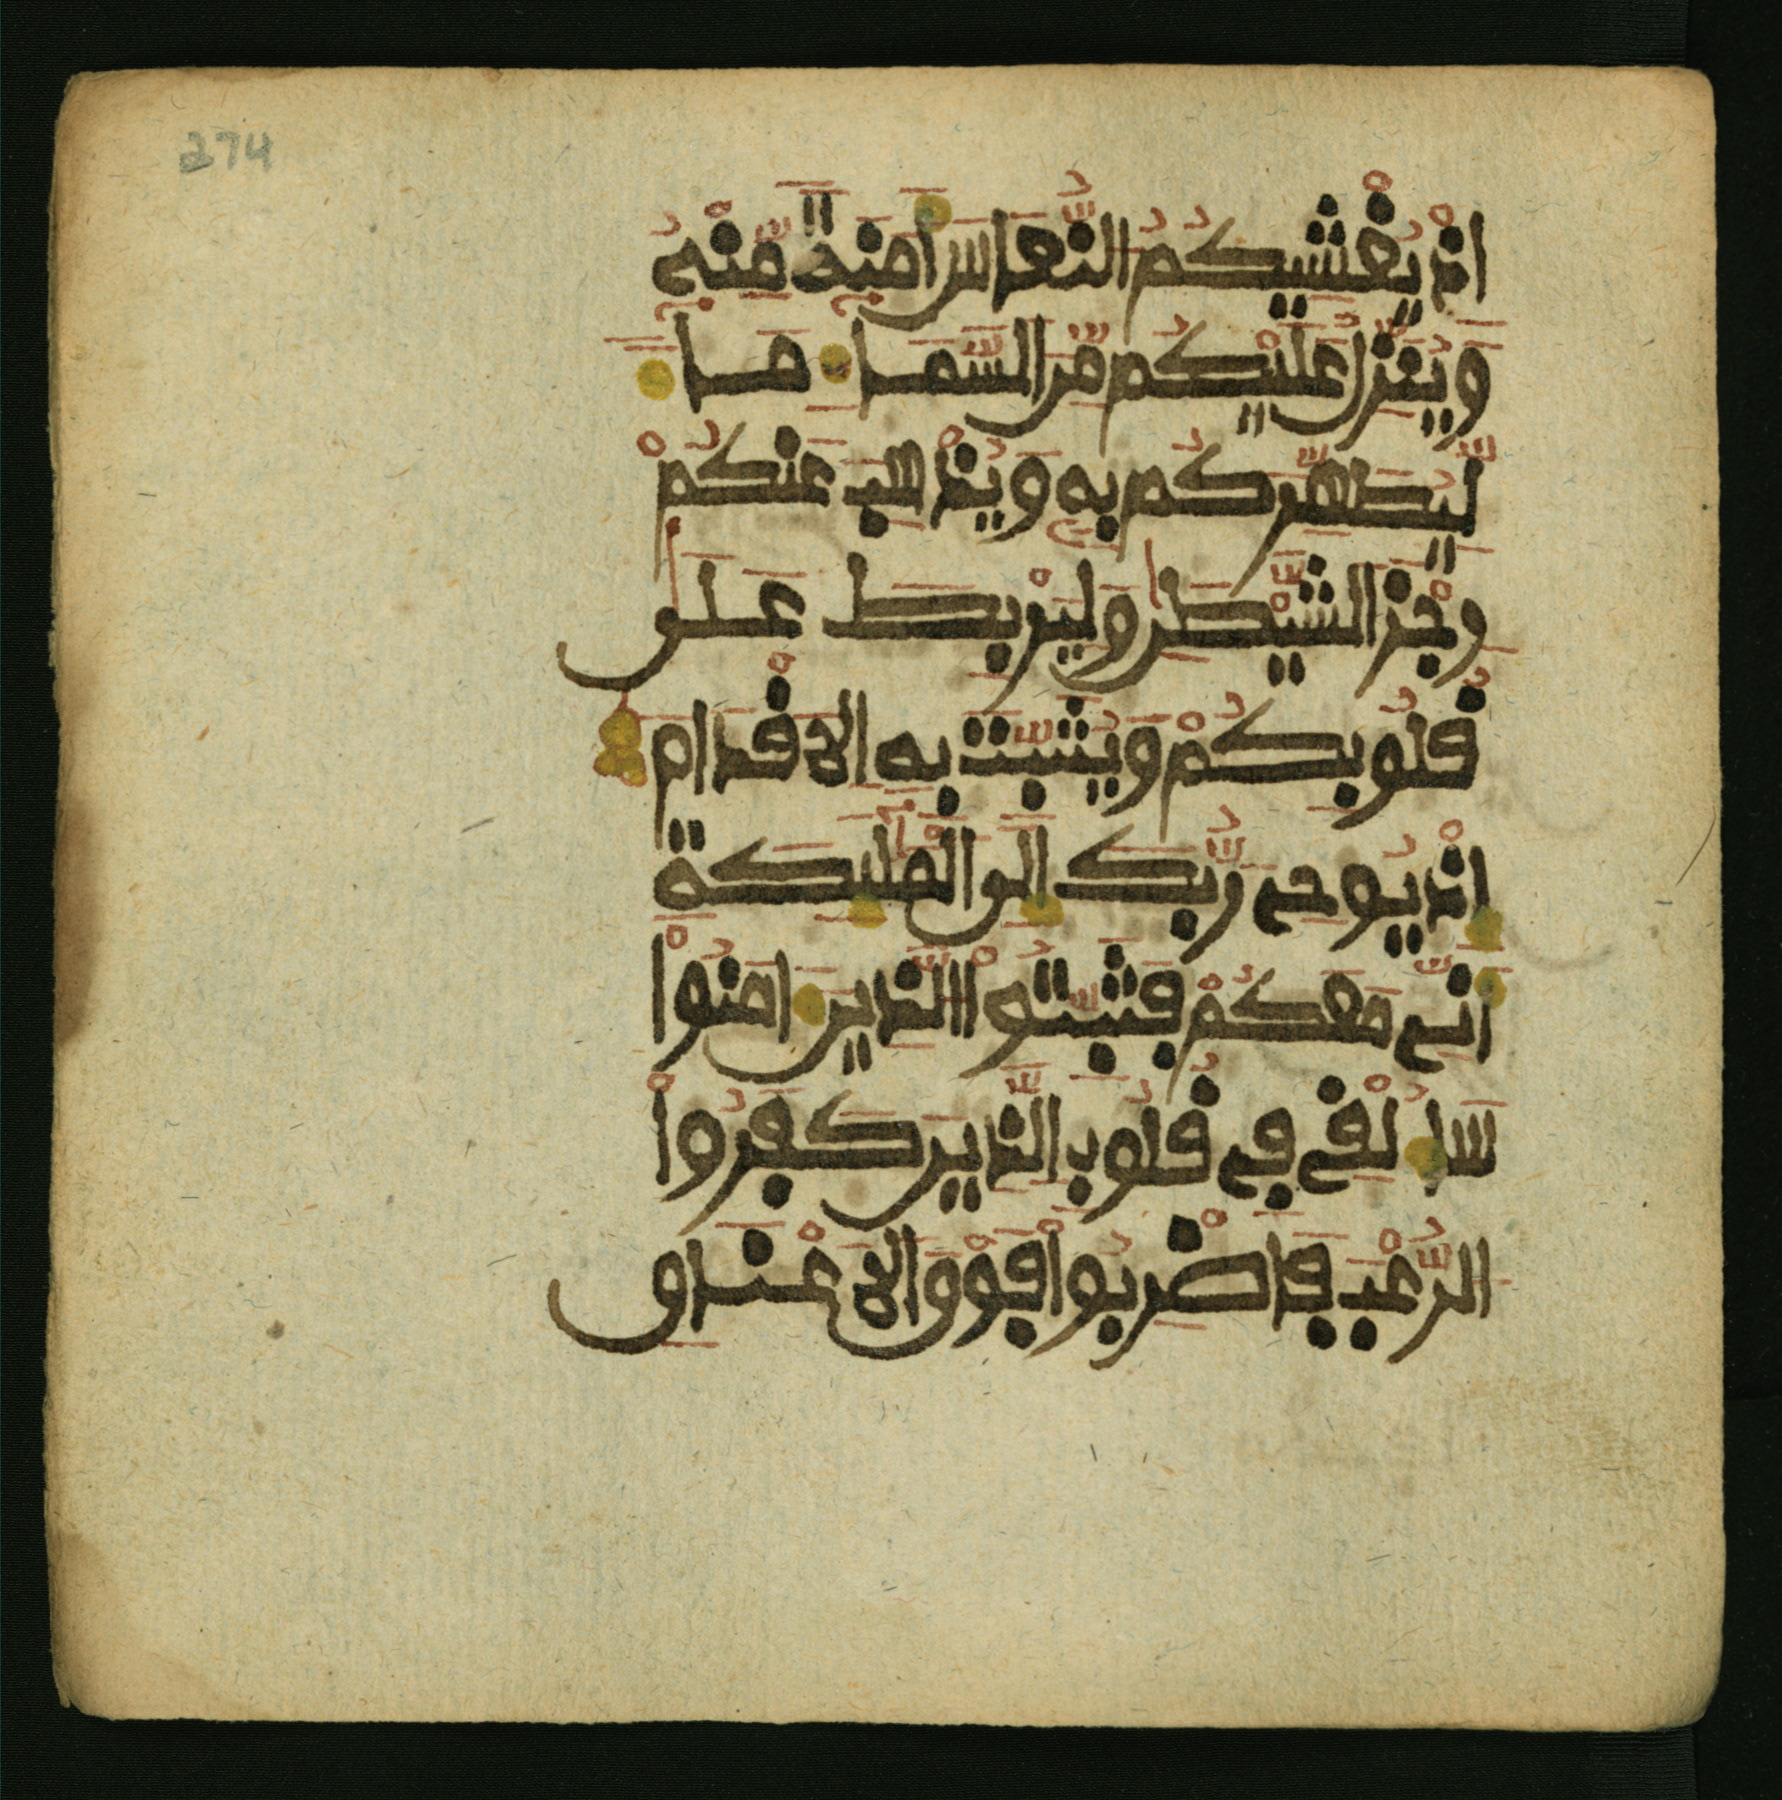 274
اذْ يُغْشِيكُمُ النُّعَاسَ أَمَنَةً مِّنْهُ
وَيُنَزِّلُ عَلَيْكُم مِّنَ السَّمَاءِ مَاءً
لِّيُطَهِّرَكُم بِهِ وَيُذْهِبَ عَنكُمْ
رِجْزَ الشَّيْطَٰنِ وَلِيَرْبِطَ عَلَىٰ
قُلُوبِكُمْ وَيُثَبِّتَ بِهِ الَاقْدَامَ
إِذْ يُوحِے رَبُّكَ إِلَى الْمَلَٰئِكَةِ
أَنِّے مَعَكُمْ فَثَبِّتُواْ الذِينَ ءَامَنُواْ
سَأُلْقِے فِے قُلُوبِ الذِينَ كَفَرُواْ
الرُّعْبَ فَاضْرِبُواْ فَوْقَ الَاعْنَاقِ